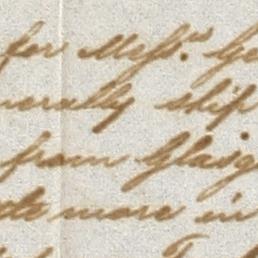 for Messrs. Ge
nerally ship
from Glasg
te more in